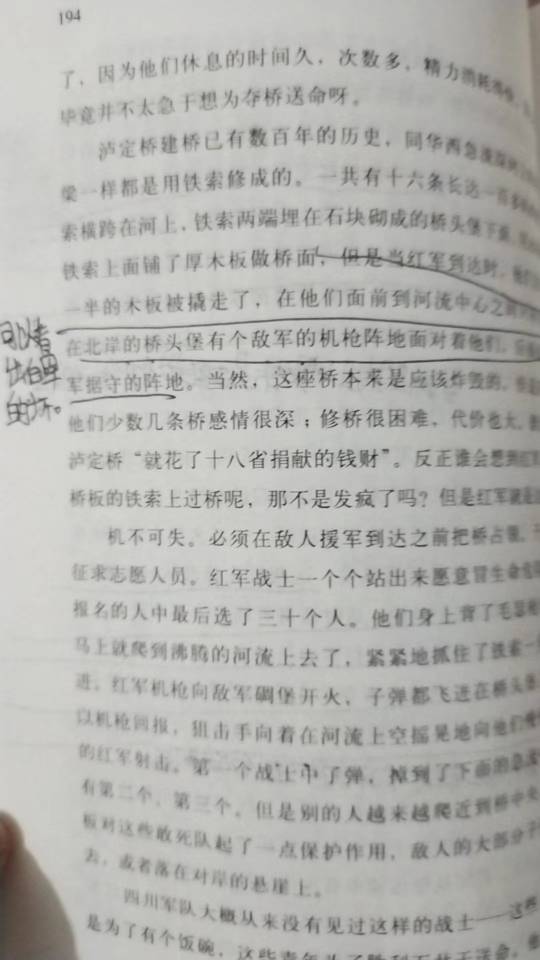 194
了，因为他们休息的时间久，次数多，精力消耗得
毕竟并不太急于想为夺桥送命呀。
泸定桥建桥已有数百年的历史，同华西急流
梁一样都是用铁索修成的。一共有十六条长达一百多
索横跨在河上，铁索两端埋在石块砌成的桥头堡下面
铁索上面铺了厚木板做桥面，但是当红军到达时
一半的木板被撬走了，在他们面前到河流中心之
在北岸的桥头堡有个敌军的机枪阵地面对着他们
军据守的阵地。当然，这座桥本来是应该炸毁的
他们少数几条桥感情很深；修桥很困难，代价也大
泸定桥“就花了十八省捐献的钱财”。反正谁会想到红军
桥板的铁索上过桥呢，那不是发疯了吗？但是红军就是
机不可失。必须在敌人援军到达之前把桥占领。
征求志愿人员。红军战士一个个站出来愿意冒生命危
报名的人中最后选了三十个人。他们身上背了毛瑟枪
马上就爬到沸腾的河流上去了，紧紧地抓住了铁索一
进。红军机枪向敌军碉堡开火，子弹都飞迸在桥头堡
以机枪回报，狙击手向着在河流上空摇晃地向他们
的红军射击。第一个战士中了弹，掉到了下面的急流
有第二个，第三个。但是别的人越来越爬近到桥中央
板对这些敢死队起了一点保护作用，敌人的大部分子
去，或者落在对岸的悬崖上。
四川军队大概从来没有见过这样的战士——这些
是为了有个饭碗，这些青年为了胜利不惜于送命。他